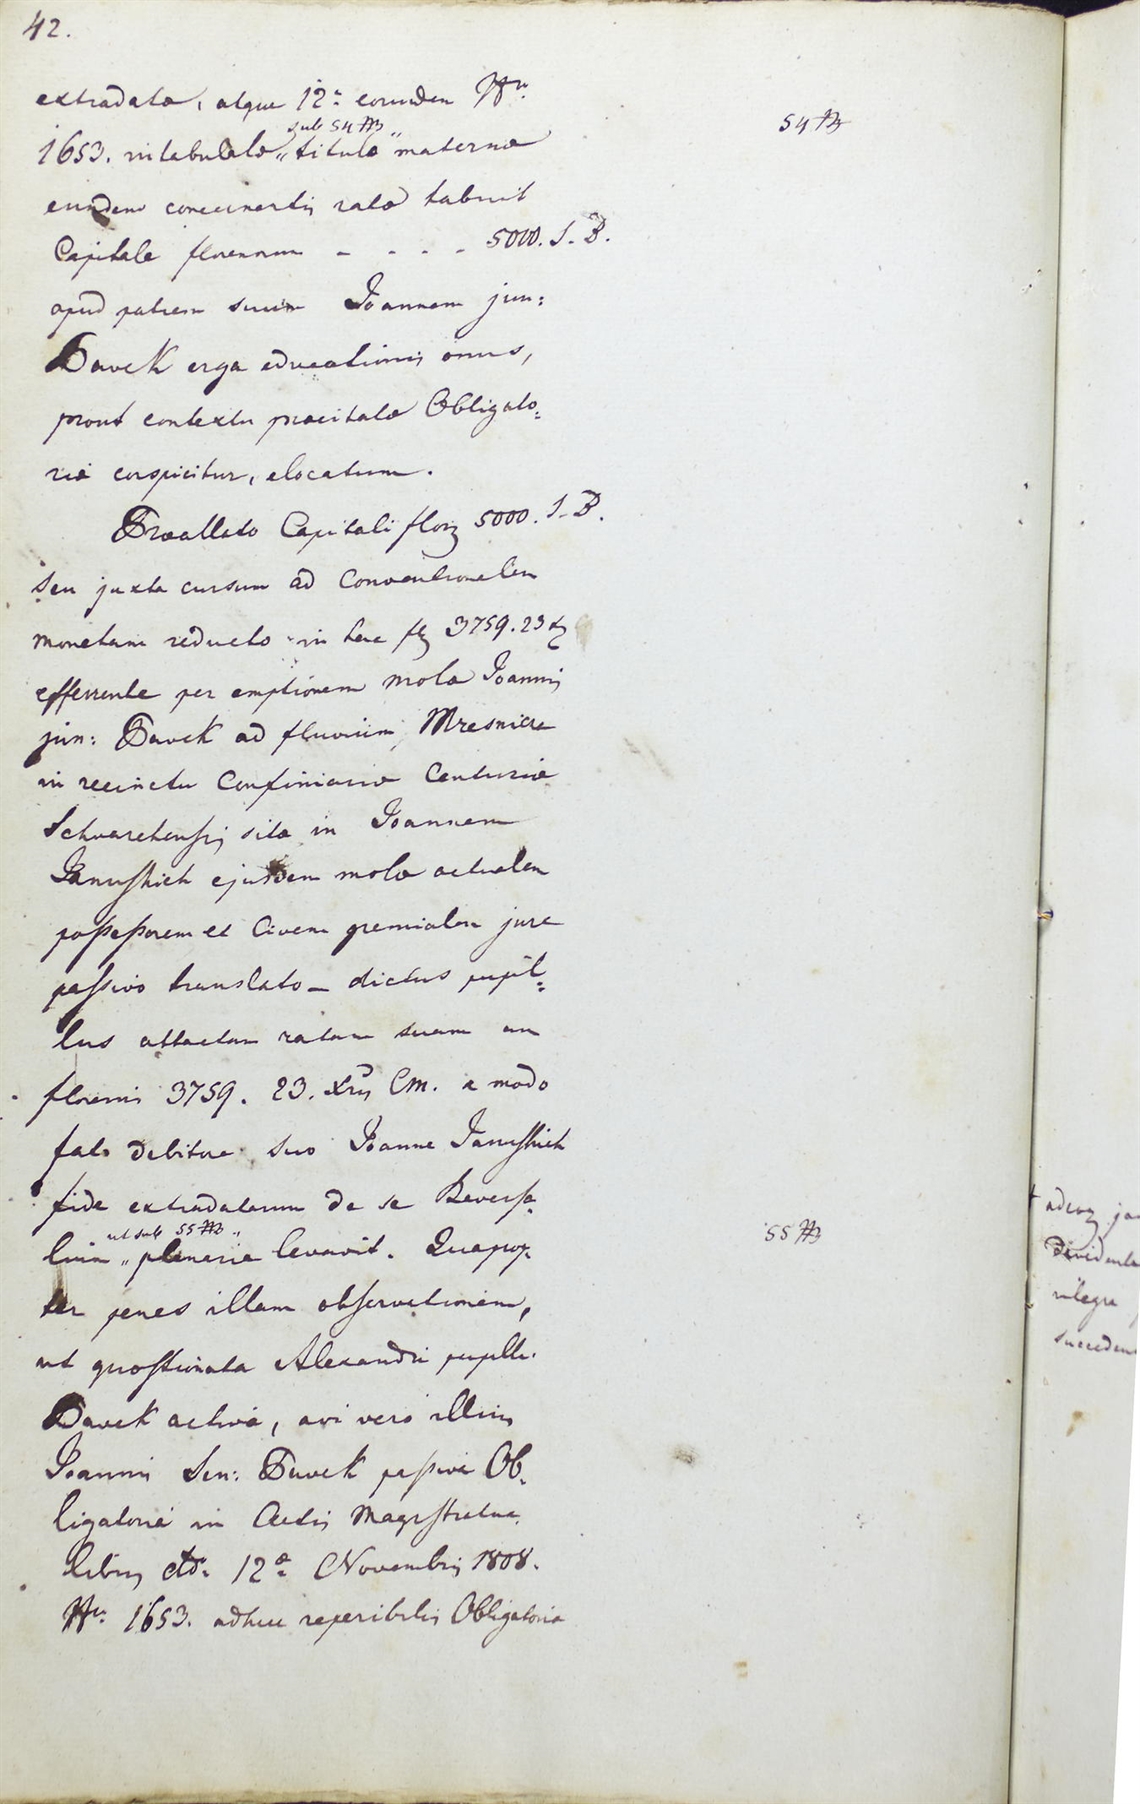 42.
extradata, atque 12a eorundem Nr.
sub 54 #
54 #
1653. intabulata „ titulo „ maternae
eundem concernentis ratae habuit
Capitale florenorum - - - - 5000. S. B.
apud patrem suum Joannem jun:
Pavek erga educationis onus,
prout contextu praecitatae Obligato:
riae conspicitur, elocatum.
Praeallato Capitali flor 5000. S. B.
seu juxta cursum ad Conventionalem
monetam reducto in hac f 3759. 23 x
efferente per emptionem mola Joannis
jun: Pavek ad fluvium Mresnicze
in recinctu Confiniariae Centuriae
Schvarchensis sita in Joannem
Janushich ejusdem mola actualem
possessorem et Civem gremialem jure
passivo translato – dictus pupil:
lus attactam ratam suam in
florenis 3759. 23. xris CM. a modo
fato debitore suo Joanne Janushich
fide extradatarum de se Reversa:
ut sub 55 #
55 #
lium „ plenarie levavit. Quaprop:
ter penes illam observationem,
ut quaestionata Alexandri pupilli
Pavek activa, avi vero illius
Joannis Sen: Pavek passiva Ob:
ligatoria in Actis Magistratua:
libus dto. 12a Novembris 1808.
Nr. 1653. adhuc reperibilis Obligatoria